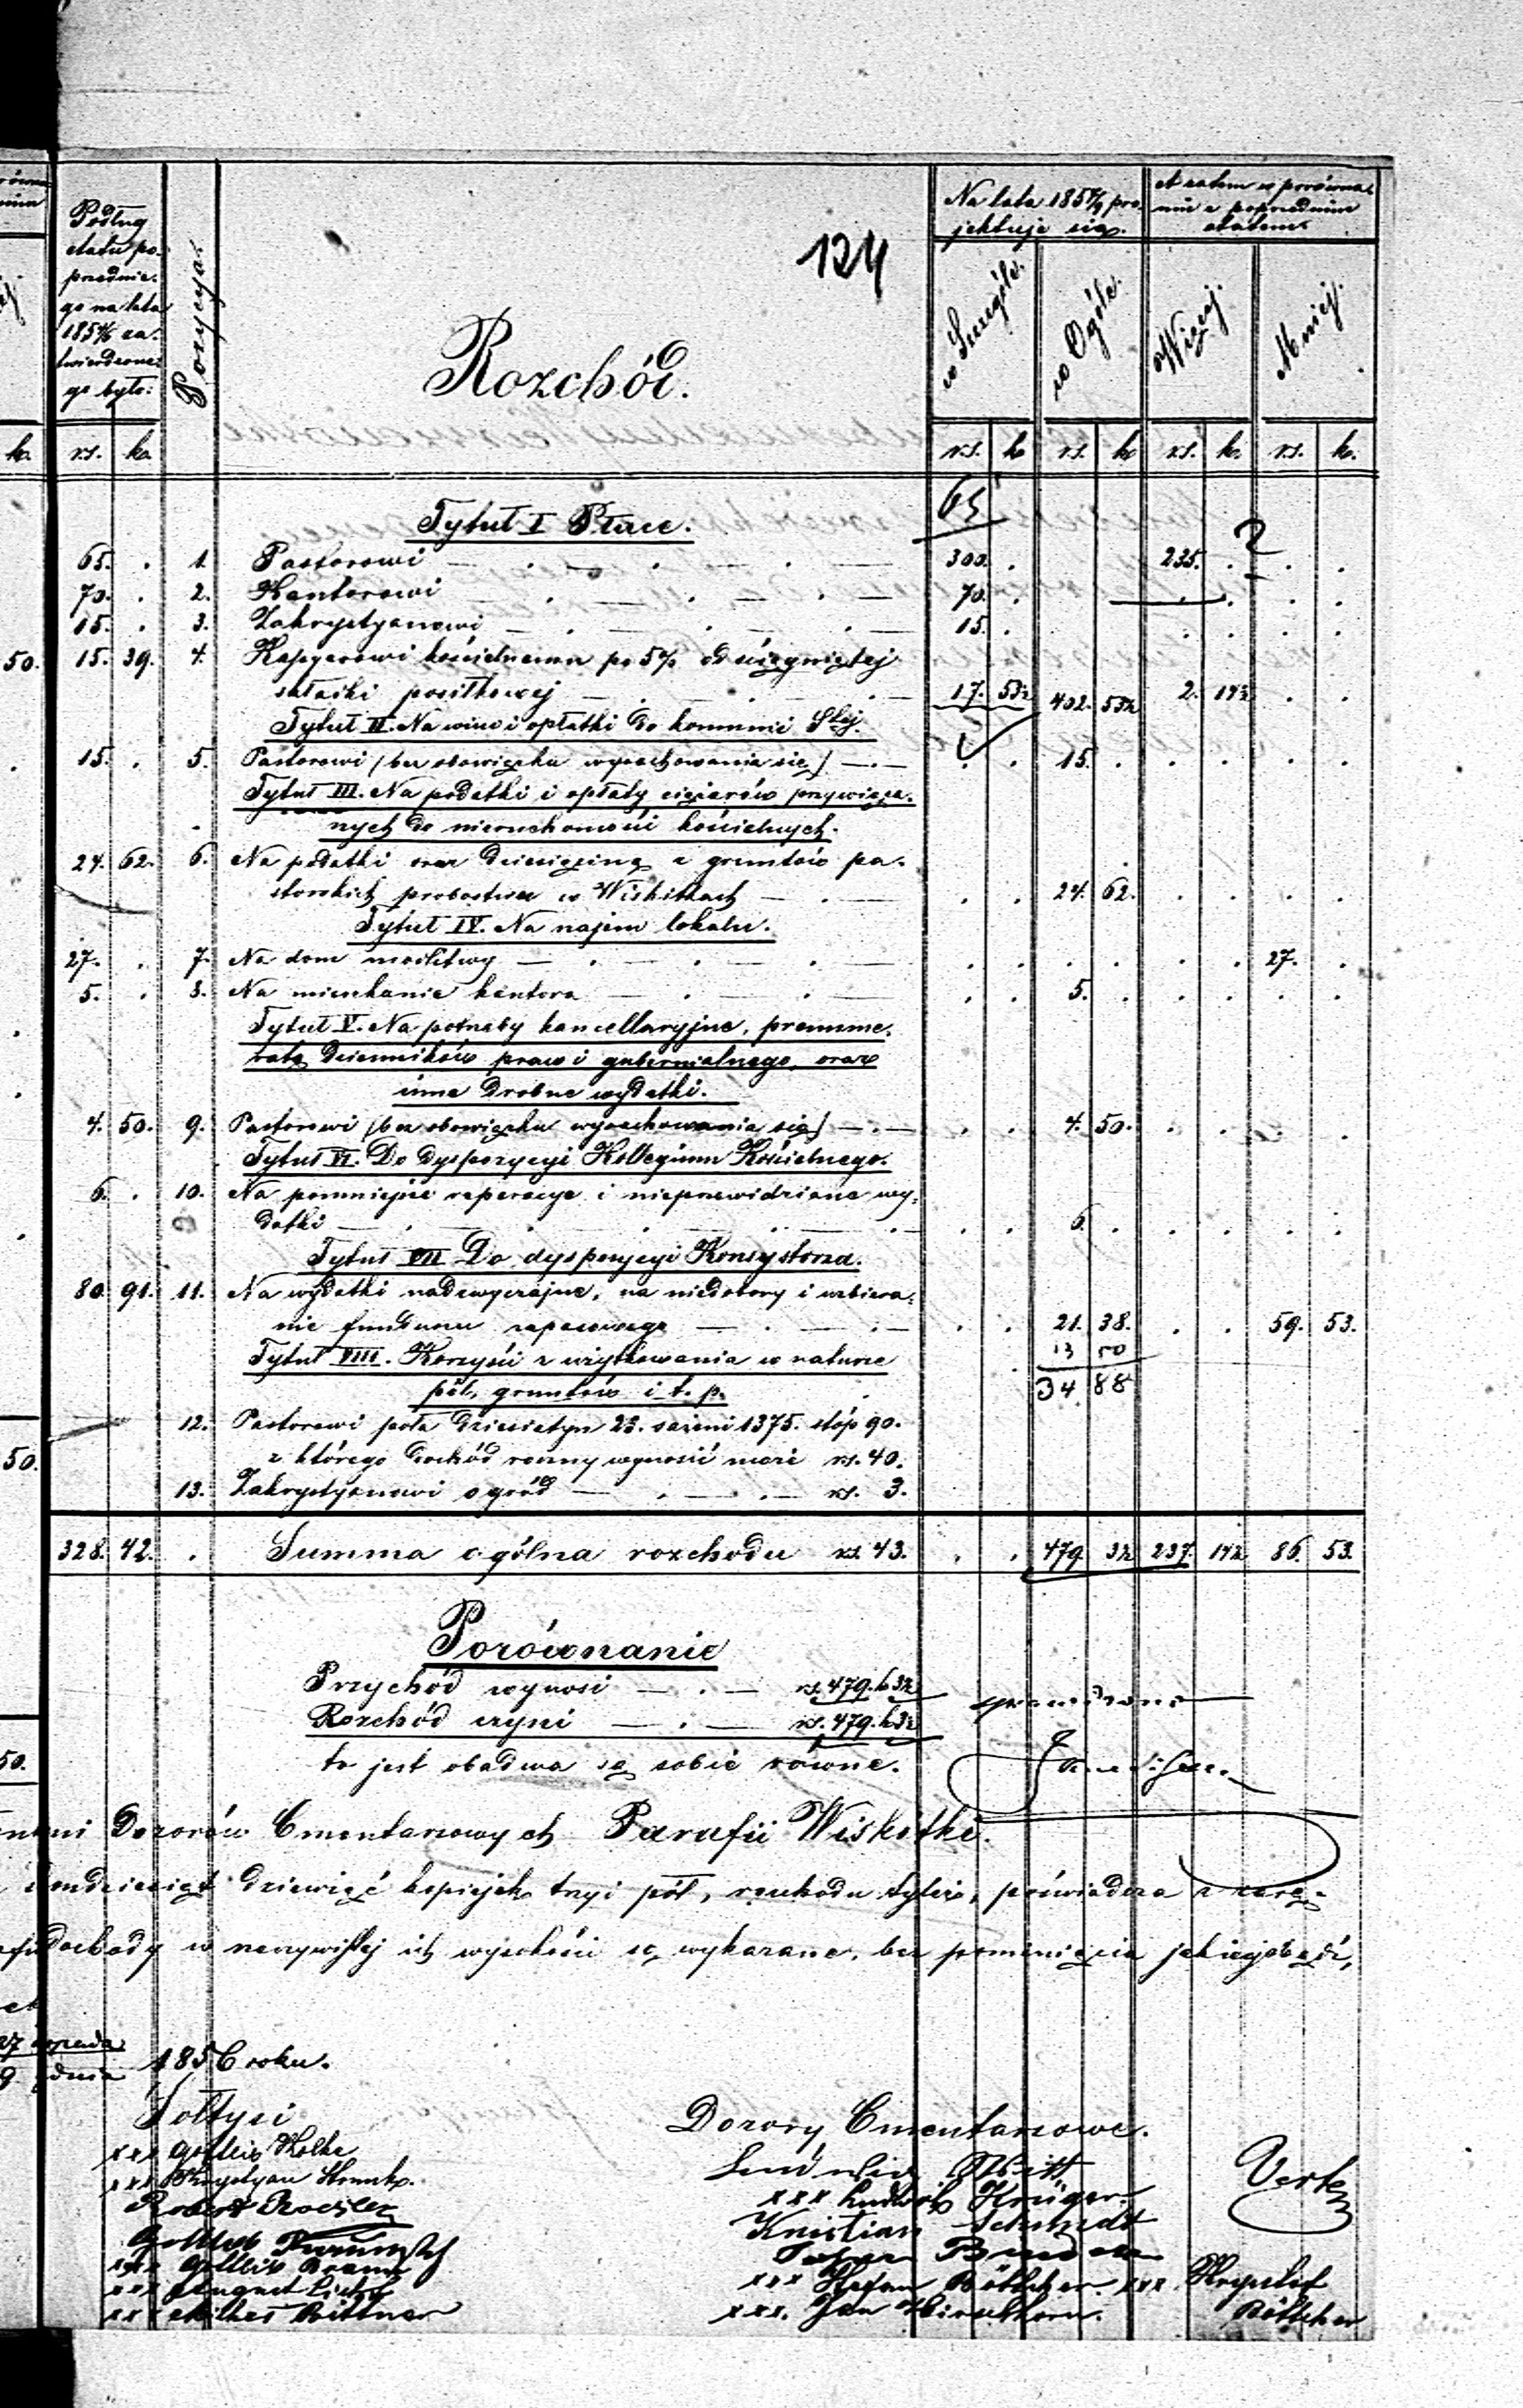 124
Podług
etatu po-
przednie-
go na lata
zatwierdzone-
go było:
Pozycya.
Rozchód.
Na lata pro-
jektuje się.
A zatem w porówna-
niu z poprzednim
etatem
w Szczególe.
w Ogóle.
Więcej.
Mniej.
ko. rs. ko. rs. k rs. k rs. k. rs. k.
Tytuł I Płace. 65
65. . 1. Pastorowi — . — . — 300. . 235. . ? . .
70. . 2. Kantorowi — . — . — 70. . . . . .
15. . 3. Zakrystyanowi — . — . — 15. . . . . .
50. 15. 39. 4. Kassyerowi kościelnemu po 5% od ściągniętej
składki posiłkowej — . — 17. 53½ 402. 53½ 2. 14½ . .
Tytuł II. Na wino i opłatki do kommunii Stej.
15. . 5. Pastorowi (bez obowiązku wyrachowania się) — . — . . 15. . . . . .
Tytuł III. Na podatki i opłaty ciężarów przywiąza-
nych do nieruchomości kościelnych.
24. 62. 6. Na podatki oraz dziesięcinę z gruntów pa-
storskich probostwa w Wiskitkach — . — . . 24. 62. . . . .
Tytuł IV. Na najem lokalu.
27. . 7. Na dom modlitwy — . — . — . . . . . . 27. .
5. . 8. Na mieszkanie kantora — . — . — . . 5. . . . . .
Tytuł V. Na potrzeby kancellaryjne, prenume-
ratę Dzienników praw i gubernialnego, oraz
inne drobne wydatki.
4. 50. 9. Pastorowi (bez obowiązku wyrachowania się) — . — . . 4. 50. . . . .
Tytuł VI. Do dyspozycyi Kollegium Kościelnego.
6. . 10. Na pomniejsze reperacye i nieprzewidziane wy-
datki — . — . — . . 6. . . . . .
Tytuł VII Do dyspozycyi Konsystorza.
80. 91. 11. Na wydatki nadzwyczajne, na niedobory i uzbiera-
nie funduszu zapasowego — . — . . 21. 38. . . 59. 53.
13 50
34 88
Tytuł VIII. Korzyści z użytkowania w naturze
pól, gruntów i t. p.
12. Pastorowi pola dziesiatyn 23. sażeni 1375. stóp 90.
50. z którego dochód roczny wynosić może rs. 40.
13. Zakrystyanowi ogród — . — . — rs. 3.
328. 42. . Summa ogólna rozchodu rs. 43. . . 479 3½ 237. 14½ 86. 53.
Porównanie
Przychód wynosi — . — rs. 479. k 3½
Rozchód czyni — . — rs. 479. k 3½
to jest obadwa są sobie równe.
sprawdzono
50.
Dozorów Cmentarzowych Parafii Wiskitki.
dziewięć kopiejek trzy i pół, rozchodu tyleż, poświadcza z zarę-
dochody w rzeczywistej ich wysokości są wykazane, bez pominięcia jakiegobądź,
27
9 dnia 1856 roku.
Sołtysi
xxx Gottlib Kolke
xxx Krystyan
Robert Roesler
Gottlieb
xxx Gottlib
xxx August
xxx Bittner
Dozory Cmentarzowe.
Witt
xxx Ludwik Krüger
Kristian Schmidt
xxx Böttcher
xxx Jan Hirschhorn.
xxx Krysztof
Böttcher